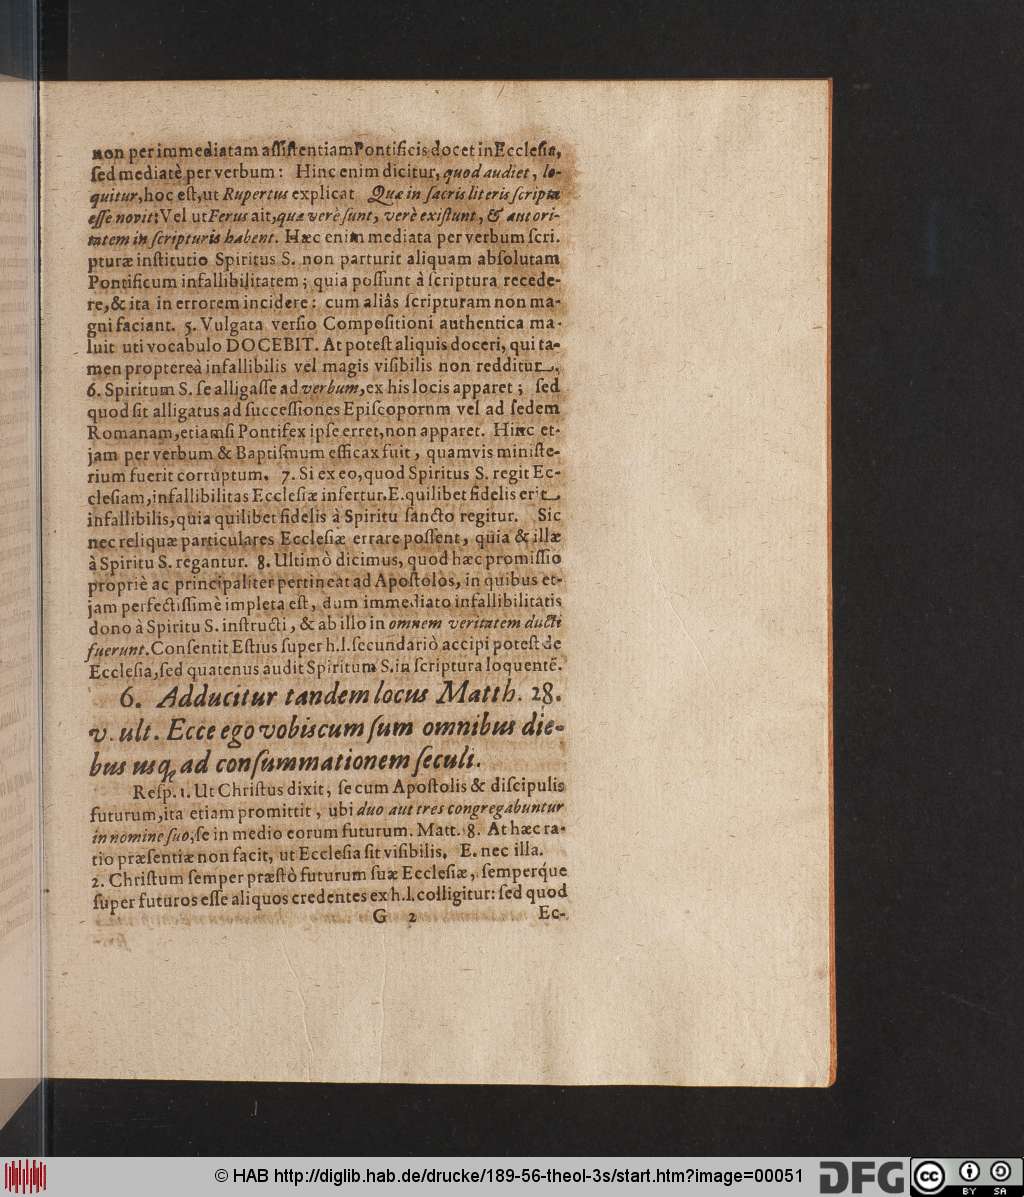 non per immediatam aſſiſtentiam Pontificis docet in Eccleſia,
ſed mediatè per verbum: Hinc enim dicitur, quod audiet, lo-
quitur, hoc eſt, ut Rupertus explicat Quæ in ſacris literis ſcripta
eſſe novit: Vel ut Ferus ait, quæ verè ſunt, verè exiſtunt, & autori-
tatem in ſcripturis habent. Hæc enim mediata per verbum ſcri.
pturæ inſtitutio Spiritus S. non parturit aliquam abſolutam
Pontificum infallibilitatem; quia poſſunt à ſcriptura recede-
re, & ita in errorem incidere: cum aliâs ſcripturam non ma-
gni faciant. 5. Vulgata verſio Compoſitioni authentica ma-
luit uti vocabulo DOCEBIT. At poteſt aliquis doceri, qui ta-
men proptereà infallibilis vel magis viſibilis non redditur.
6. Spiritum S. ſe alligaſſe ad verbum, ex his locis apparet; ſed
quod ſit alligatus ad ſucceſſiones Epiſcoporum vel ad ſedem
Romanam, etiamſi Pontifex ipſe erret, non apparet. Hinc et-
jam per verbum & Baptiſmum efficax fuit, quamvis miniſte-
rium fuerit corruptum. 7. Si ex eo, quod Spiritus S. regit Ec-
cleſiam, infallibilitas Eccleſiæ infertur. E. quilibet fidelis erit
infallibilis, quia quilibet fidelis à Spiritu ſancto regitur. Sic
nec reliquæ particulares Eccleſiæ errare poſſent, quia & illæ
à Spiritu S. regantur. 8. Ultimò dicimus, quod hæc promiſſio
propriè ac principaliter pertineat ad Apoſtolos, in quibus et-
jam perfectiſſimè impleta eſt, dum immediato infallibilitatis
dono à Spiritu S. inſtructi, & ab illo in omnem veritatem ducti
fuerunt. Conſentit Eſtius ſuper h. l. ſecundariò accipi poteſt de
Eccleſia, ſed quatenus audit Spiritum S. in ſcriptura loquentẽ.
6. Adducitur tandem locus Matth. 28.
v. ult. Ecce ego vobiscum ſum omnibus die-
bus usq; ad conſummationem ſeculi.
Reſp. 1. Ut Chriſtus dixit, ſe cum Apoſtolis & diſcipulis
futurum, ita etiam promittit, ubi duo aut tres congregabuntur
in nomine ſuo, ſe in medio eorum futurum. Matt. 8. At hæc ra-
tio præſentiæ non facit, ut Eccleſia ſit viſibilis. E. nec illa.
2. Chriſtum ſemper præſtò futurum ſuæ Eccleſiæ, ſemperque
ſuper futuros eſſe aliquos credentes ex h. l. colligitur: ſed quod
G 2 Ec-
© HAB http://diglib.hab.de/drucke/189-56-theol-3s/start.htm?image=00051
DFG
cc BY SA